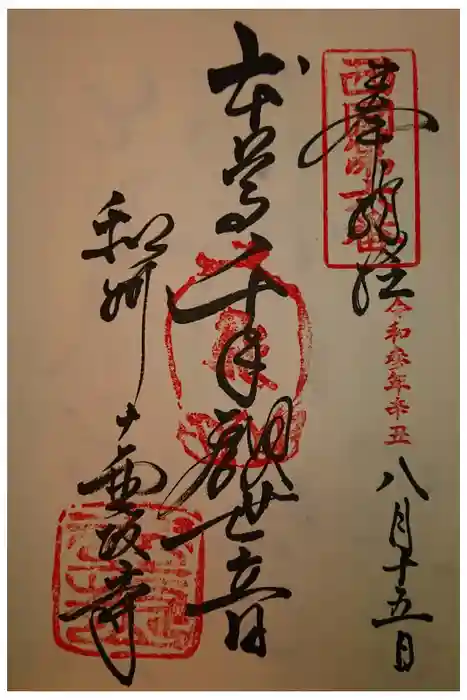 西國第六番
奉納経
令和参年辛丑
八月十五日
本尊千手觀世音
和州
壷坂寺